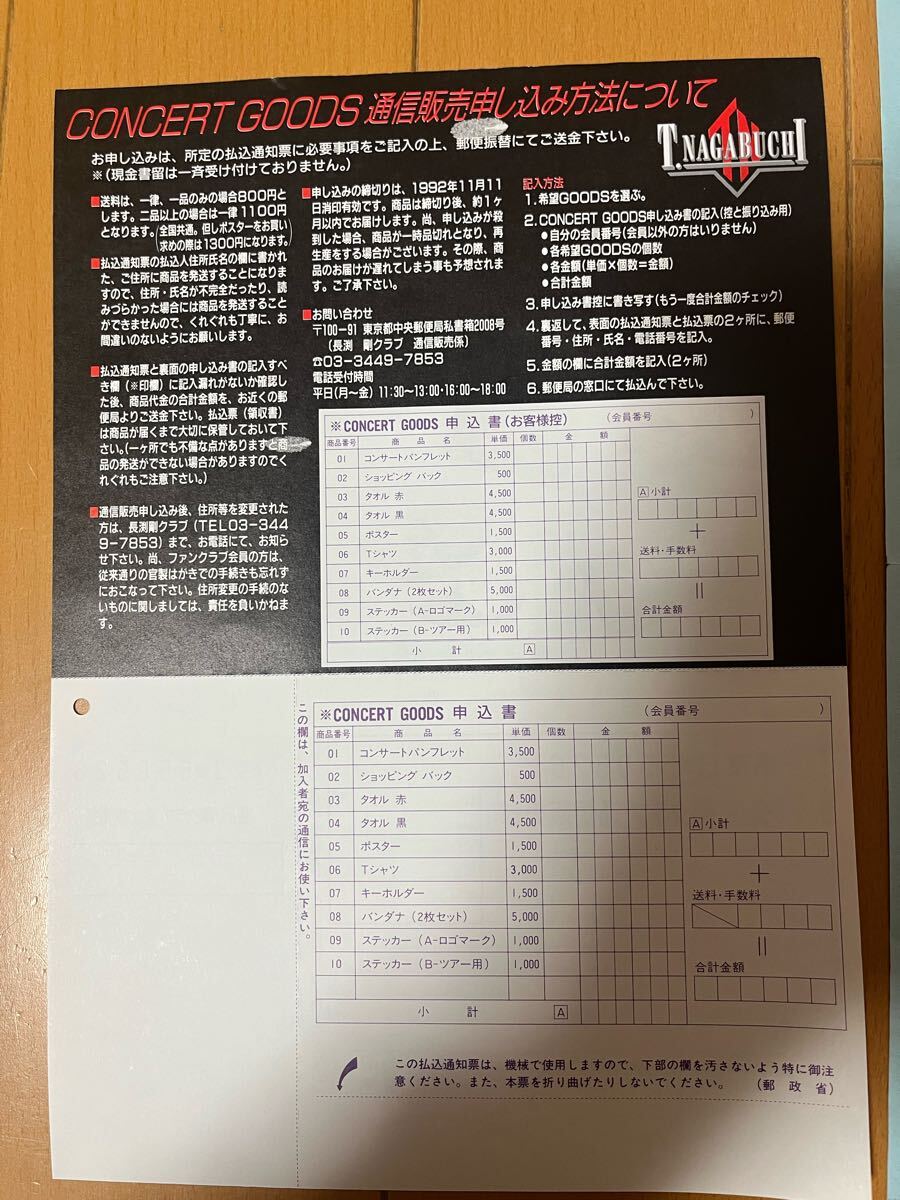 CONCERT GOODS 通信販売申し込み方法について
お申し込みは、所定の払込通知票に必要事項をご記入の上、郵便振替にてご送金下さい。
※(現金書留は一斉受け付けておりません。)
T.NAGABUCHI
■送料は、一律、一品のみの場合800円と
します。二品以上の場合は一律1100円
となります。(全国共通。但しポスターをお買い
求めの際は1300円になります。)
■払込通知票の払込人住所氏名の欄に書かれ
た、ご住所に商品を発送することになりま
すので、住所・氏名が不完全だったり、読
みづらかった場合には商品を発送すること
ができませんので、くれぐれも丁寧に、お
間違いのないようにお願いします。
■払込通知票と裏面の申し込み書の記入すべ
き欄(※印欄)に記入漏れがないか確認し
た後、商品代金の合計金額を、お近くの郵
便局よりご送金下さい。払込票(領収書)
は商品が届くまで大切に保管しておいて下
さい。(一ヶ所でも不備な点がありますと商
品の発送ができない場合がありますのでく
れぐれもご注意下さい。)
■通信販売申し込み後、住所等を変更された
方は、長渕剛クラブ(TEL03-344
9-7853)まで、お電話にて、お知ら
せ下さい。尚、ファンクラブ会員の方は、
従来通りの官製はがきでの手続きも忘れず
におこなって下さい。住所変更の手続のな
いものに関しましては、責任を負いかねま
す。
■申し込みの締切りは、1992年11月11
日消印有効です。商品は締切り後、約1ヶ
月以内でお届けします。尚、申し込みが殺
到した場合、商品が一時品切れとなり、再
生産をする場合がございます。その際、商
品のお届けが遅れてしまう事も予想されま
す。ご了承下さい。
■お問い合わせ
〒100-91 東京都中央郵便局私書箱2008号
(長渕 剛クラブ 通信販売係)
☎03-3449-7853
電話受付時間
平日(月~金) 11:30~13:00・16:00~18:00
記入方法
1.希望GOODSを選ぶ。
2.CONCERT GOODS申し込み書の記入(控と振り込み用)
●自分の会員番号(会員以外の方はいりません)
●各希望GOODSの個数
●各金額(単価×個数=金額)
●合計金額
3.申し込み書控に書き写す(もう一度合計金額のチェック)
4.裏返して、表面の払込通知票と払込票の2ヶ所に、郵便
番号・住所・氏名・電話番号を記入。
5.金額の欄に合計金額を記入(2ヶ所)
6.郵便局の窓口にて払込んで下さい。
※CONCERT GOODS 申 込 書(お客様控) (会員番号 )
商品番号 商 品 名 単価 個数 金 額
01 コンサートパンフレット 3,500
02 ショッピング バック 500
03 タオル 赤 4,500
04 タオル 黒 4,500
05 ポスター 1,500
06 Tシャツ 3,000
07 キーホルダー 1,500
08 バンダナ (2枚セット) 5,000
09 ステッカー (A-ロゴマーク) 1,000
10 ステッカー (B-ツアー用) 1,000
小 計 A
A 小計
+
送料・手数料
=
合計金額
この欄は、加入者宛の通信にお使い下さい。
※CONCERT GOODS 申 込 書 (会員番号 )
商品番号 商 品 名 単価 個数 金 額
01 コンサートパンフレット 3,500
02 ショッピング バック 500
03 タオル 赤 4,500
04 タオル 黒 4,500
05 ポスター 1,500
06 Tシャツ 3,000
07 キーホルダー 1,500
08 バンダナ (2枚セット) 5,000
09 ステッカー (A-ロゴマーク) 1,000
10 ステッカー (B-ツアー用) 1,000
小 計 A
A 小計
+
送料・手数料
=
合計金額
この払込通知票は、機械で使用しますので、下部の欄を汚さないよう特に御注
意ください。また、本票を折り曲げたりしないでください。 (郵 政 省)